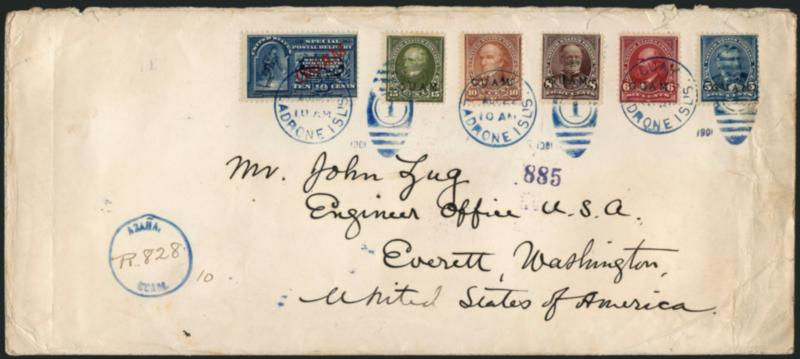 SPECIAL
POSTAL DELIVERY
TEN 10 CENTS
15 GUAM 15
10 GUAM 10
GUAM 8
6 6
5 5
GUAM
10 AM
LADRONE ISL'S
1
1901
10 AM
LADRONE ISL'S
1
1901
GUAM
LADRONE ISL'S
1901
885
Mr. John Zug
Engineer Office U.S.A.
Everett, Washington,
United States of America.
AGAÑA,
R.828
GUAM.
10